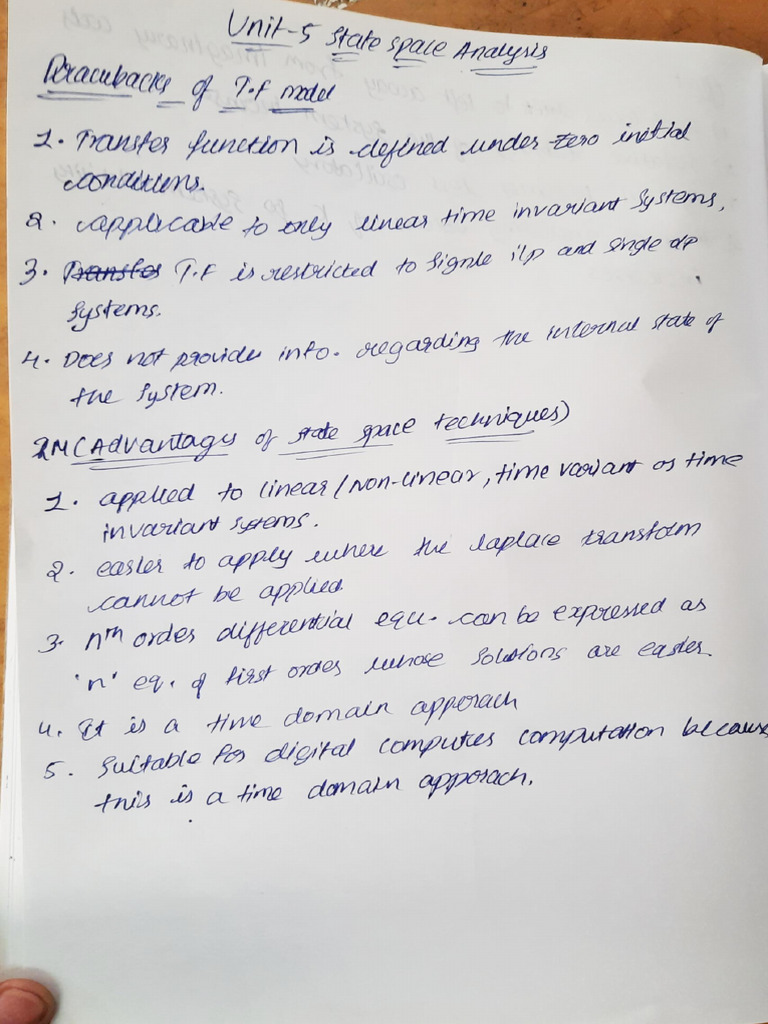 Unit-5 State Space Analysis
Drawbacks of T.F model
1. Transfer function is defined under zero initial
conditions.
2. applicable to only linear time invariant systems,
3. Transfer T.F is restricted to Signle i/p and single o/p
Systems.
4. Does not provide info. regarding the internal state of
the System.
2M (Advantages of state space techniques)
1. applied to linear/Non-linear, time variant or time
invariant systems.
2. easier to apply where the laplace transform
cannot be applied.
3. nth order differential equ. can be expressed as
'n' eq. of first order whose Solutions are easier.
4. It is a time domain apperach
5. Suitable for digital computer computation because
this is a time domain apporach.